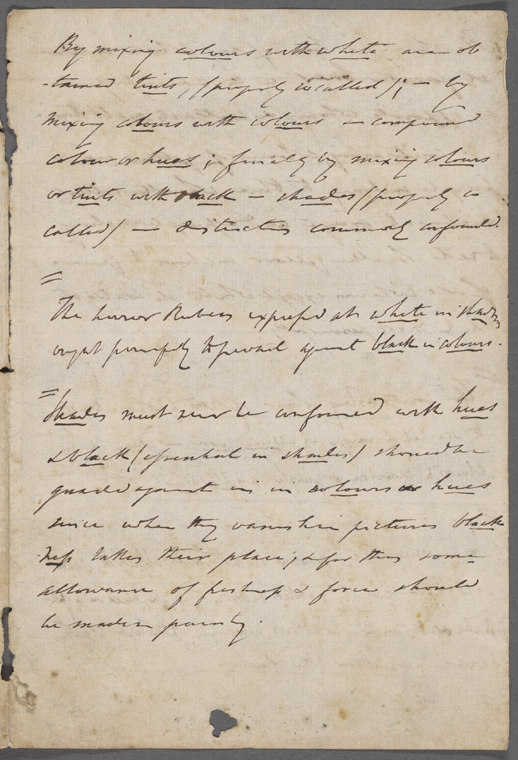 By mixing colours with white are ob
-tained tints, (properly so called); – by
mixing colours with colours – compound
colour or hues; & finally by mixing colours
or tints with black – shades (properly so
called) – distinctions commonly confounded.
=
The horror Rubens expressed at white in shadows
ought principally to prevail against black in colours.
=
Shades must never be confounded with hues
& black (essential in shades) should be
guarded against in colours or hues
since when they vanish in pictures black
ness takes their place; & for this some
allowance of freshness & force should
be made in painting.